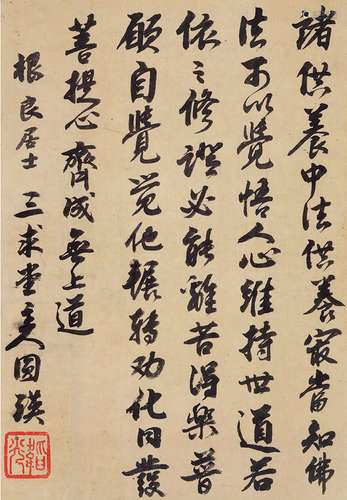 諸供養中法供養最當知佛
法可以覺悟人心維持世道若
依之修證必能離苦得樂普
願自覺覺他輾轉劝化同發
菩提心齊成無上道
根良居士 三求堂主人圆瑛